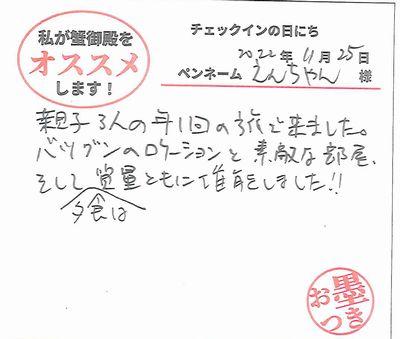 私が蟹御殿を
オススメ
します!
チェックインの日にち
2022年11月25日
ペンネーム えんちゃん 様
親子3人の年1回の旅で来ました。
バツグンのロケーションと素敵な部屋、
そして夕食は質量ともに堪能をしました!!
お墨つき